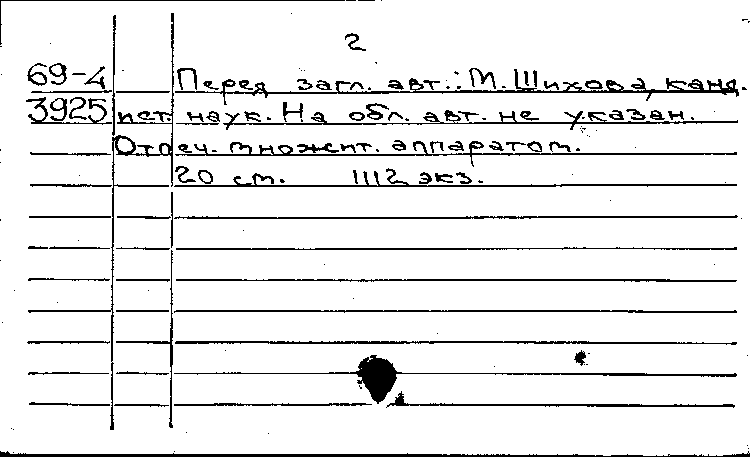 2
69-4 Перед загл. авт.: М. Шихова, канд.
3925 ист. наук. На обл. авт. не указан.
Отпеч. множит. аппаратом.
20 см. 1112 экз.